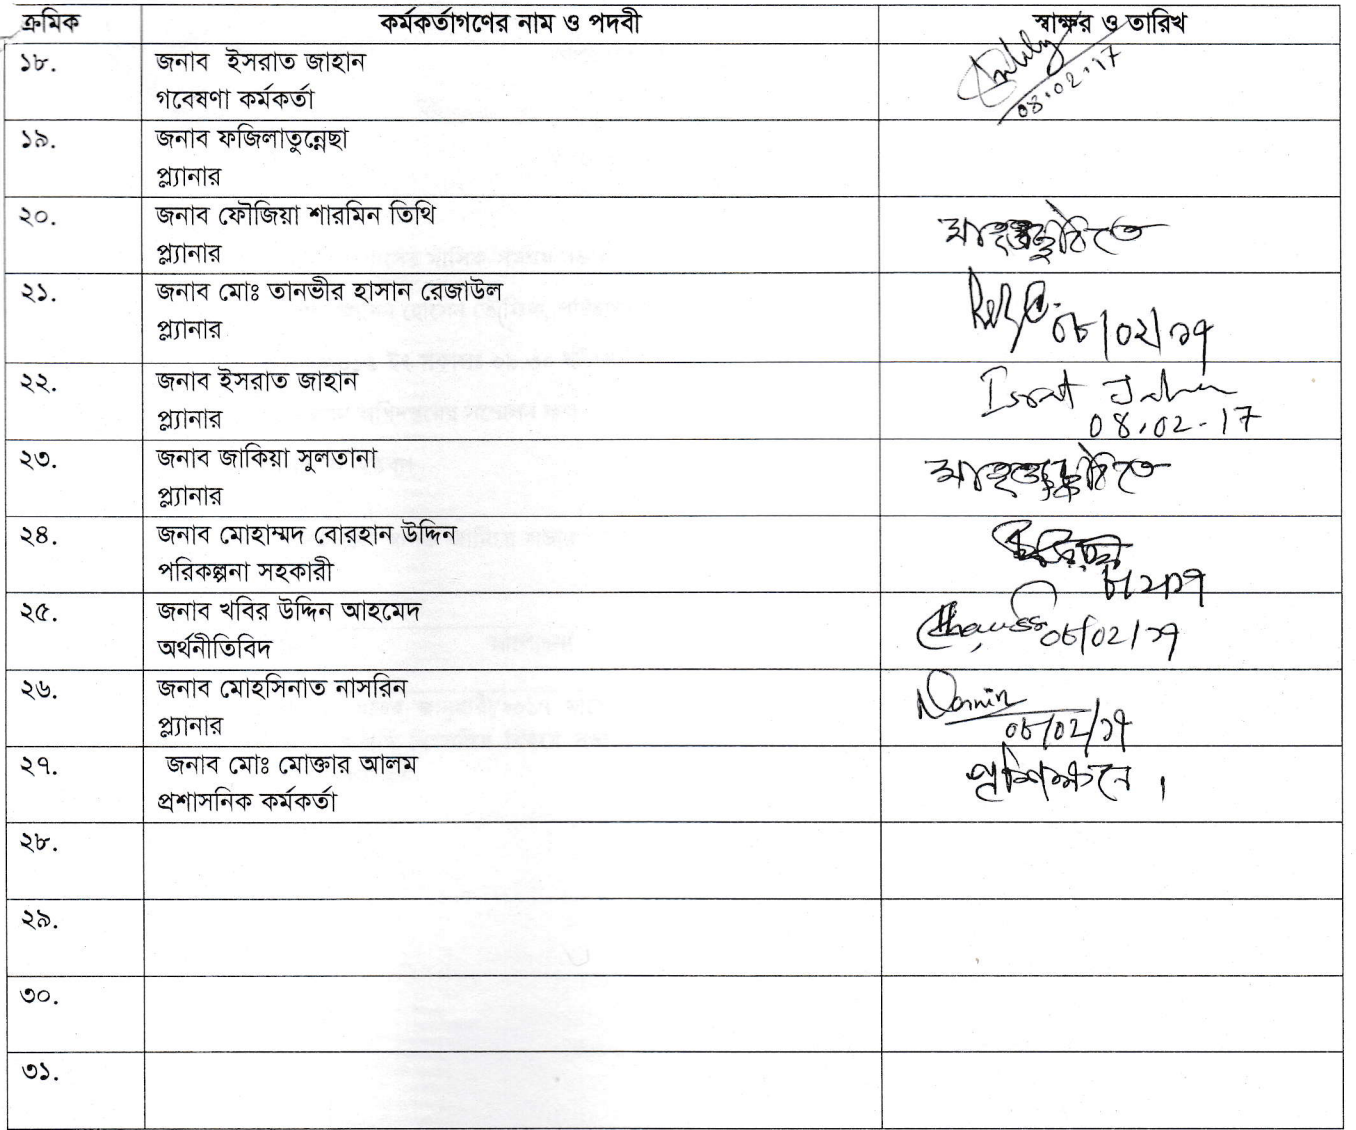 ক্রমিক কর্মকর্তাগণের নাম ও পদবী স্বাক্ষর ও তারিখ
১৮. জনাব ইসরাত জাহান
গবেষণা কর্মকর্তা 08.02.17
১৯. জনাব ফজিলাতুন্নেছা
প্ল্যানার
২০. জনাব ফৌজিয়া শারমিন তিথি
প্ল্যানার মাতৃত্বছুটিতে
২১. জনাব মোঃ তানভীর হাসান রেজাউল
প্ল্যানার ০৮/০২/১৭
২২. জনাব ইসরাত জাহান Israt Jahan
প্ল্যানার 08.02-17
২৩. জনাব জাকিয়া সুলতানা মাতৃত্বছুটিতে
প্ল্যানার
২৪. জনাব মোহাম্মদ বোরহান উদ্দিন
পরিকল্পনা সহকারী ৮/২/১৭
২৫. জনাব খবির উদ্দিন আহমেদ
অর্থনীতিবিদ ০৮/০২/১৭
২৬. জনাব মোহসিনাত নাসরিন
প্ল্যানার ০৮/০২/১৭
২৭. জনাব মোঃ মোক্তার আলম প্রশিক্ষনে।
প্রশাসনিক কর্মকর্তা
২৮.
২৯.
৩০.
৩১.